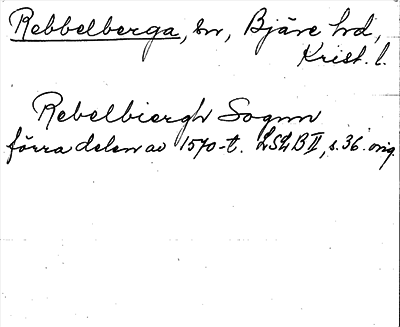 Rebbelberga, sn, Bjäre hd,
Krist. l.
Rebelbiergh Sognn
förra delen av 1570-t. LSLB II, s. 36. orig.